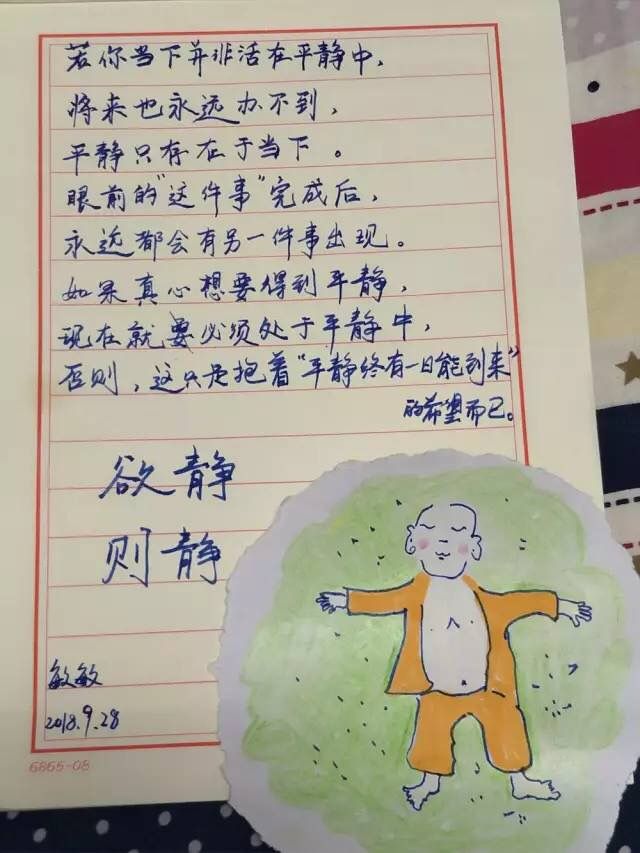 若你当下并非活在平静中，
将来也永远办不到，
平静只存在于当下。
眼前的“这件事”完成后，
永远都会有另一件事出现。
如果真心想要得到平静，
现在就要必须处于平静中，
否则，这只是抱着“平静终有一日能到来”
的希望而已。
欲静
则静
敏敏
2018.9.28
6865-08